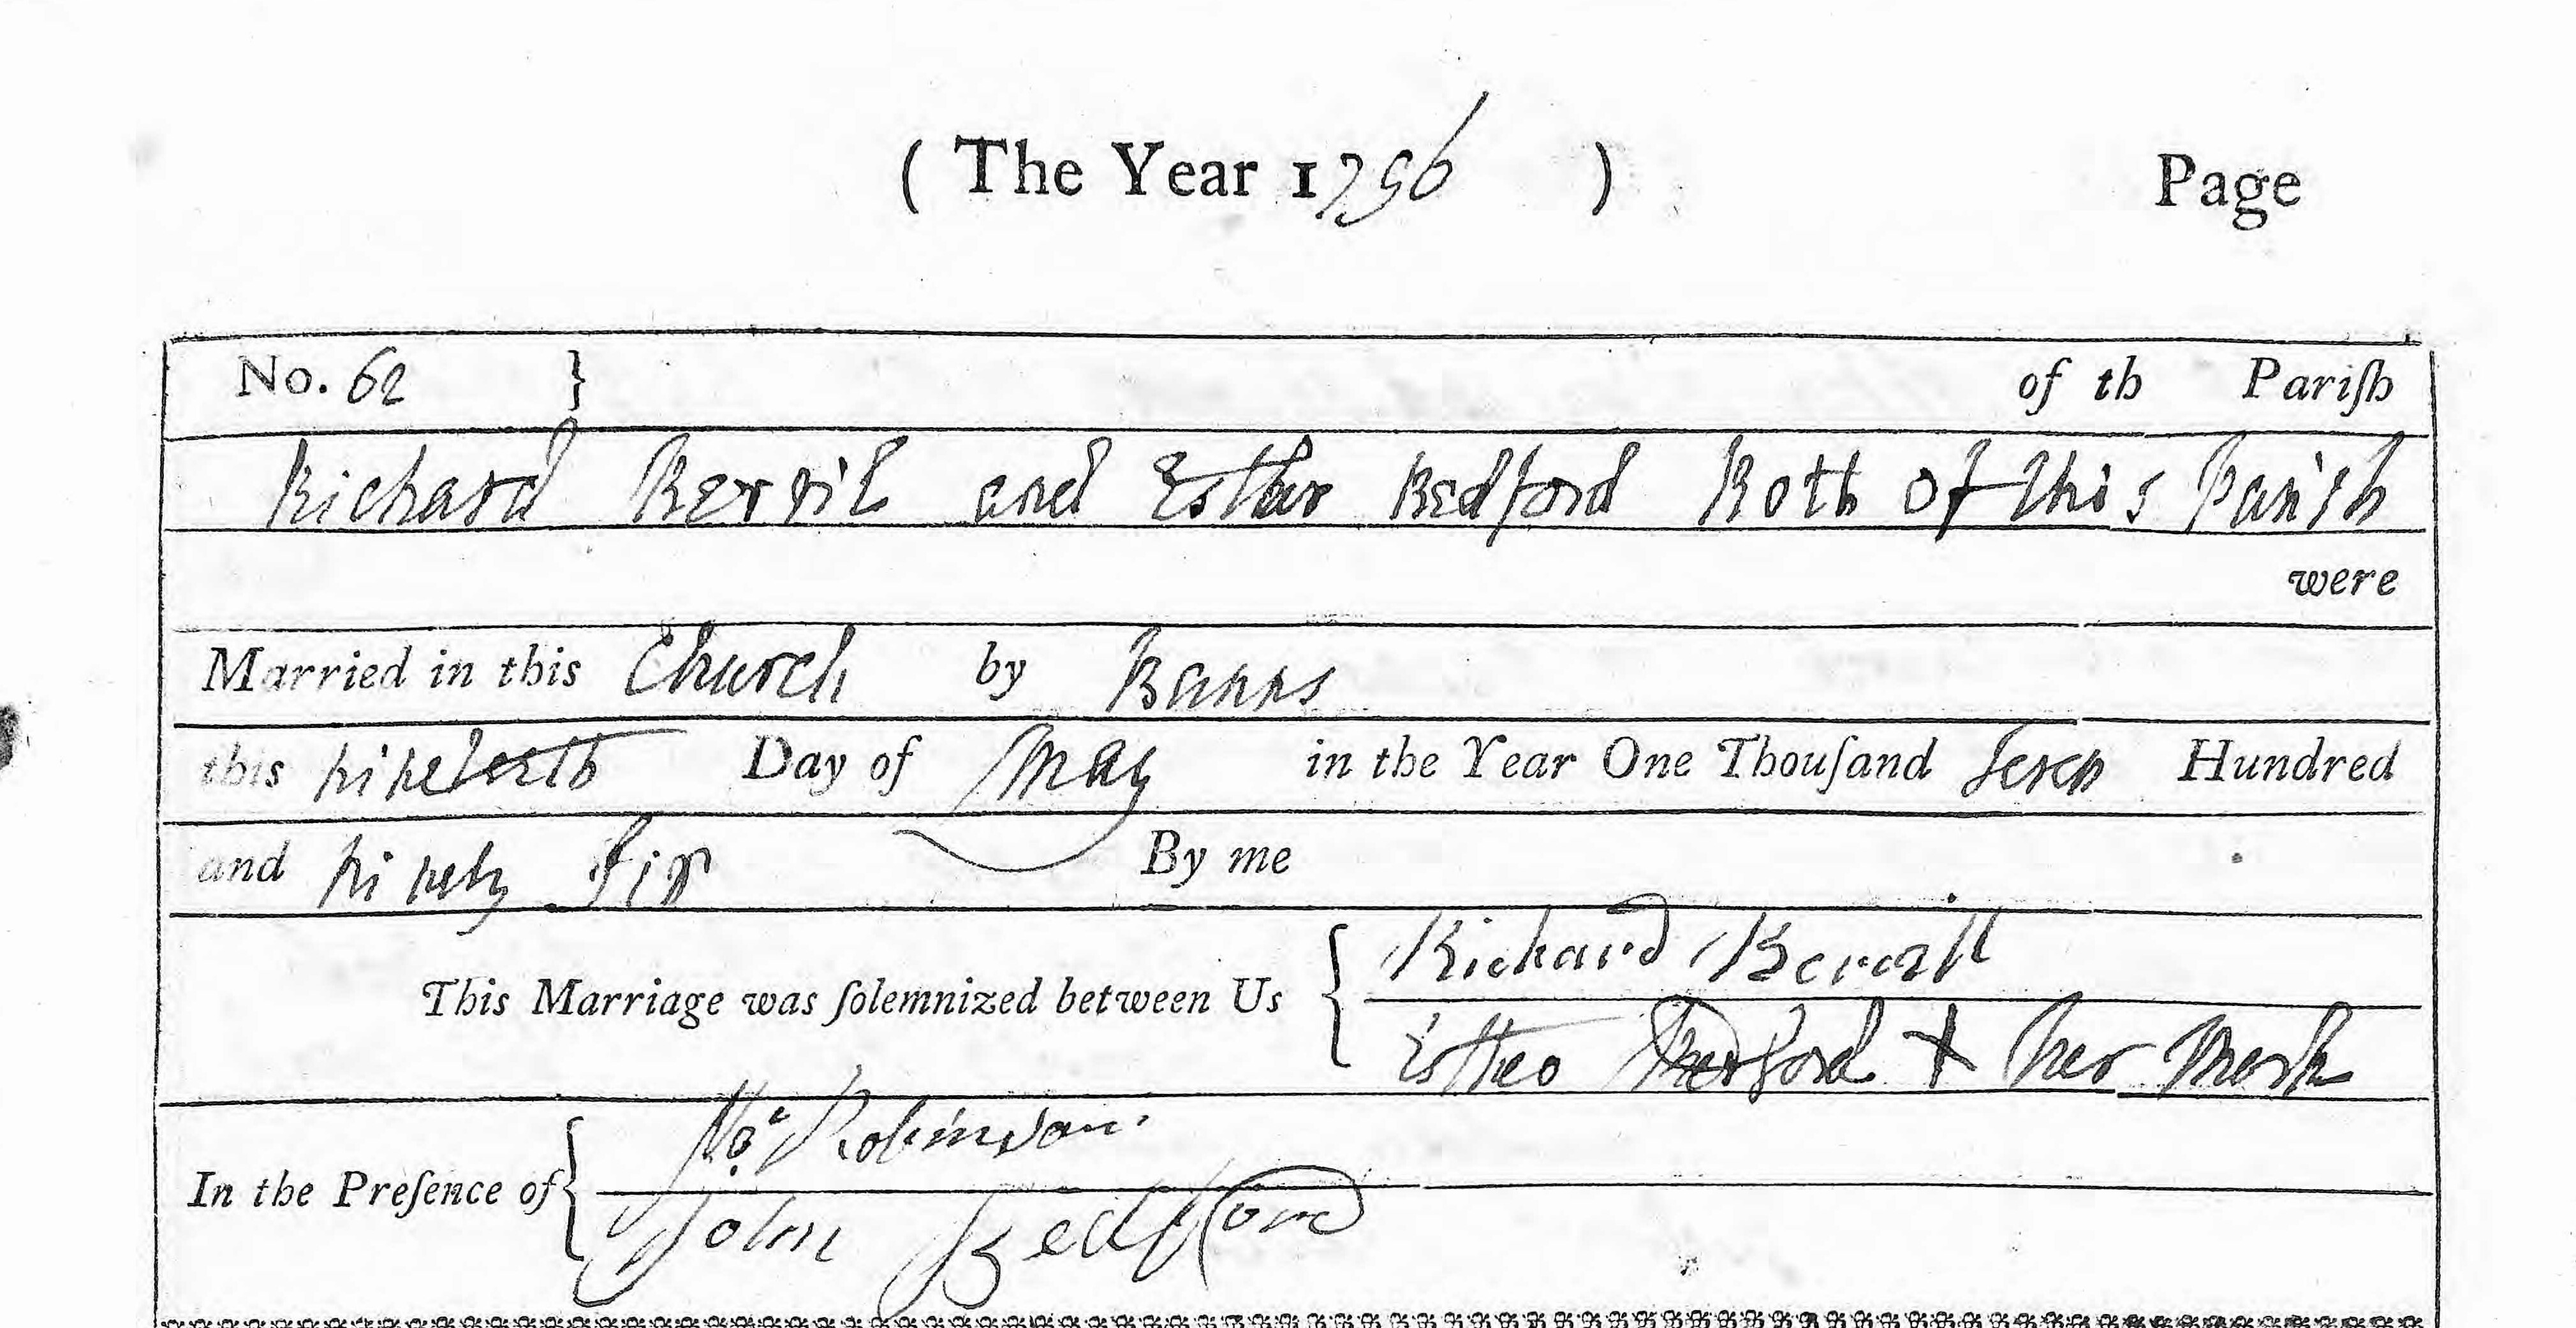 ( The Year 1796 ) Page
No. 62 } of th Pariſh
Richard Berril and Esther Bedford Both of This Parish
were
Married in this Church by Banns
this nineteenth Day of May in the Year One Thouſand Seven Hundred
and ninety Six By me
This Marriage was ſolemnized between Us { Richard
Esther Bedford + her Mark
In the Preſence of { Robinson
John Bedford